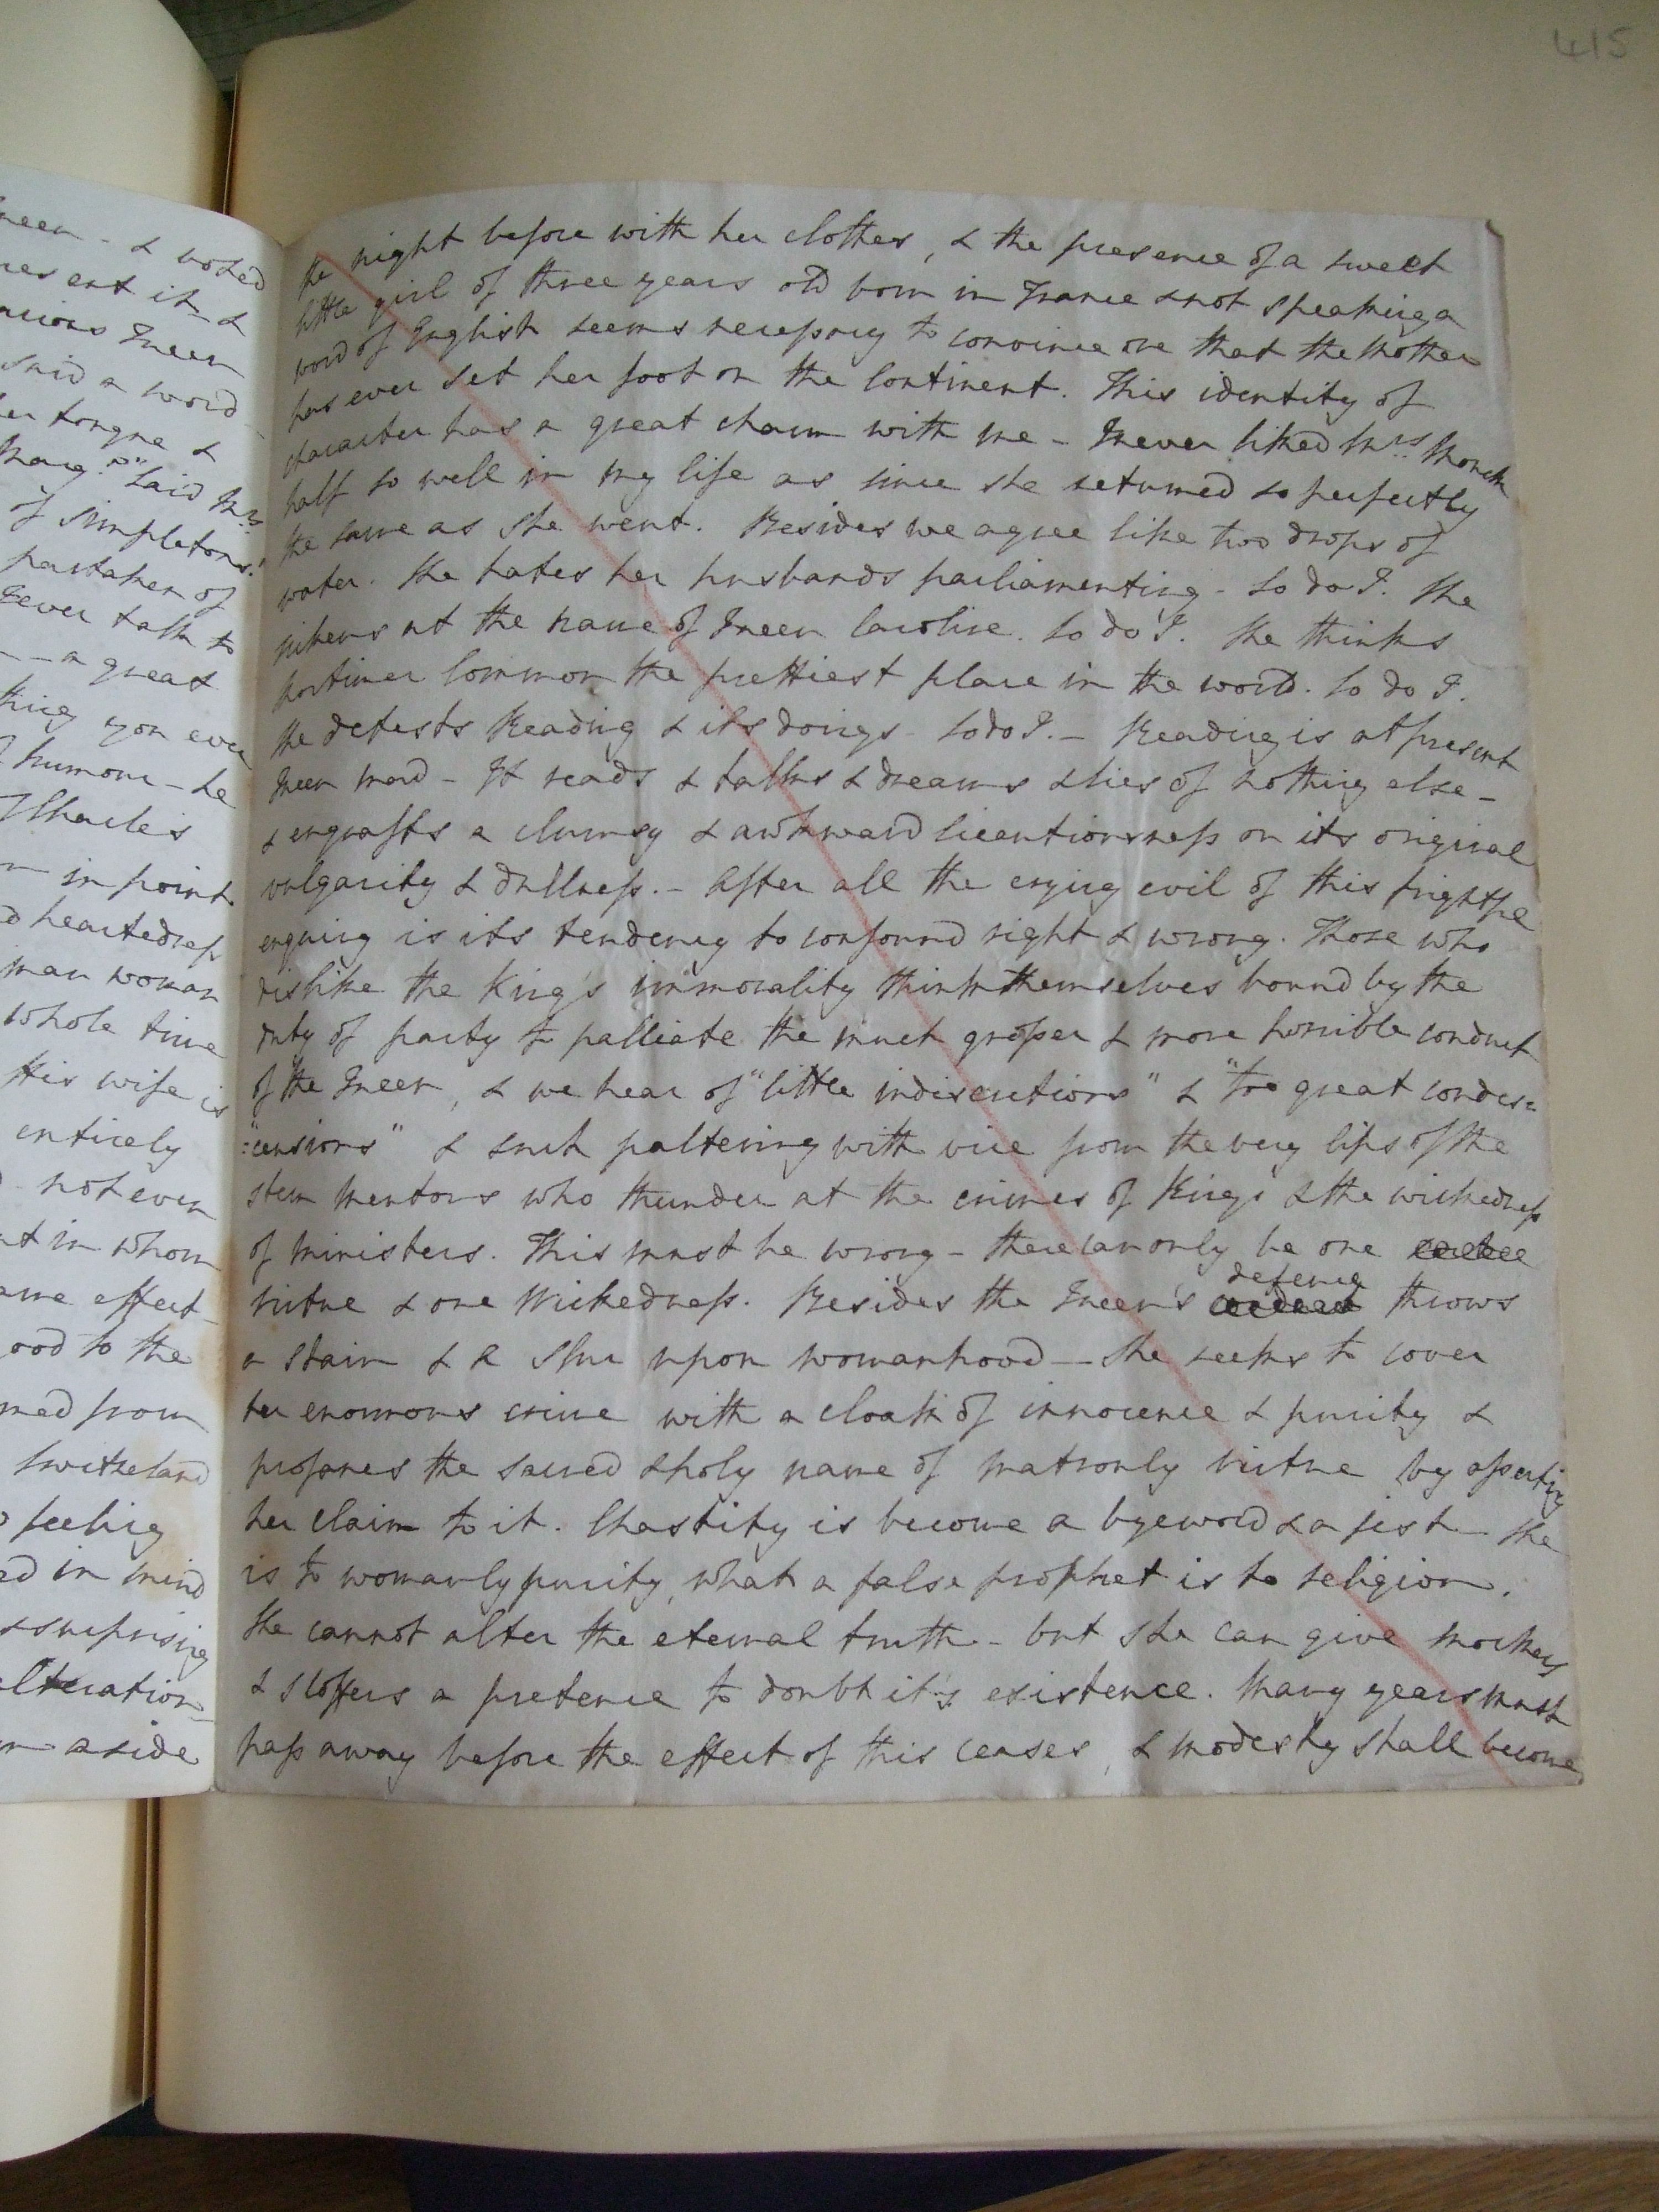 415
the night before with her clothes, & the presence of a sweet
little girl of three years old born in France & not speaking a
word of English seems necessary to convince one that the Mother
has ever set her foot on the Continent. This identity of
character has a great charm with me - I never liked Mrs. Monck
half so well in my life as since she returned so perfectly
the same as she went. Besides we agree like two drops of
water. She hates her husbands parliamenting - So do I. She
sickens at the name of Queen Caroline. So do I. She thinks
Mortimer Common the prettiest place in the world. So do I.
She detests Reading & it's doings - So do I. - Reading is at present
Queen mad - It reads & talks & dreams & lies of nothing else -
& engrafts a clumsy & awkward licentiousness on its original
vulgarity & dullness. - After all the crying evil of this frightful
enquiry is its tendency to confound right & wrong. Those who
dislike the King's immorality think themselves bound by the
duty of party to palliate the much grosser & more horrible conduct
of the Queen, & we hear of "little indiscretions" & "too great condes=
="censions" & such paltering with vice from the very lips of the
stern Mentors who thunder at the crimes of Kings & the wickedness
of Ministers. This must be wrong - there can only be one
Virtue & one Wickedness. Besides the Queen's defence throws
a stain & a slur upon womanhood - She seeks to cover
her enormous crime with a cloak of innocence & purity &
profanes the sacred & holy name of matronly virtue by asserting
her claim to it. Chastity is become a byeword & a jest - She
is to womanly purity, what a false prophet is to religion.
She cannot alter the eternal truth - but she can give mockers
& scoffers a pretence to doubt it's existence. Many years must
pass away before the effect of this ceases, & modesty shall become
& voted
it &
Queen
said a word
her tongue &
said Mrs.
of simpletons!
partaker of
ever talk to
a great
thing you ever
humour - he
Charles
in point
heartedness
man woman
whole time
His wife is
entirely
not even
in whom
same effect
good to the
from
Switzeland
feeling
in mind
surprising
alteration
aside